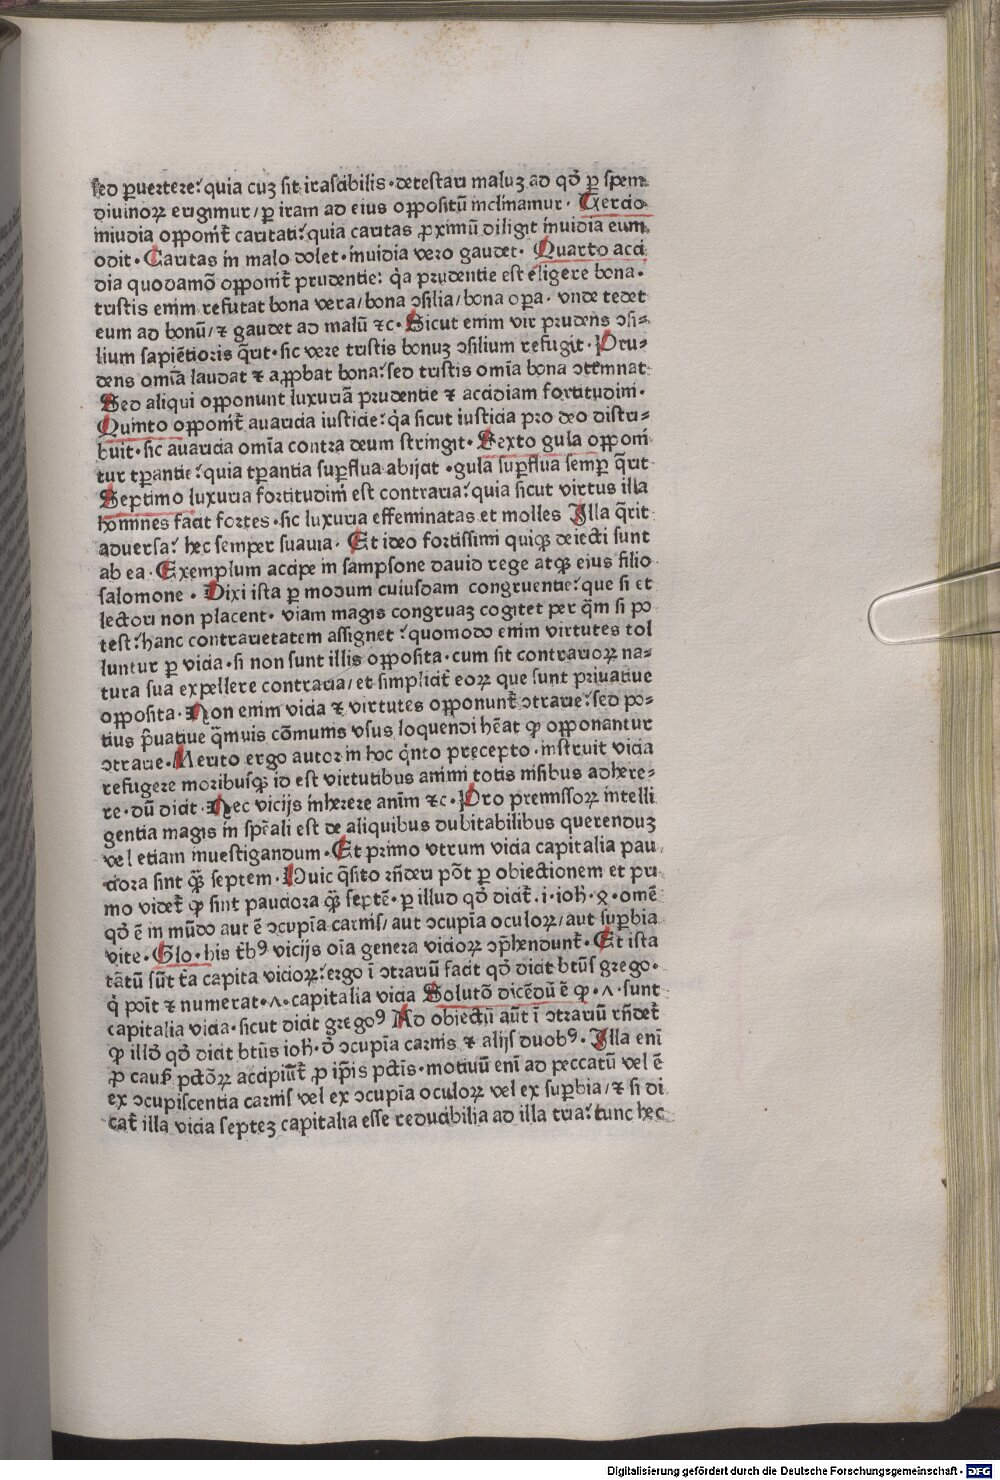 sed ꝑuertere? quia cuʒ sit irascibilis · detestari maluʒ ad qđ ꝑ spem
diuinoꝝ erigimur / ꝑ iram ad eius oppositū inclinamur · Tercio
inuidia opponit̄ caritati? quia caritas ꝓximū diligit inuidia eum
odit · Caritas in malo dolet · inuidia vero gaudet · Quarto acci
dia quodāmō opponit̄ prudentie: q̇a prudentie est eligere bona ·
tristis enim refutat bona vera / bona ɔsilia / bona oꝑa · vnde tedet
eum ad bonū / ⁊ gaudet ad malū ⁊c · Sicut enim vir prudens ɔsi⸗
lium sapiētioris q̄rit · sic vere tristis bonuʒ ɔsilium refugit · Pru⸗
dens omīa laudat ⁊ aꝓbat bona? sed tristis omīa bona ɔtēnat
Sed aliqui opponunt luxuriā prudentie ⁊ accidiam fortitudini ·
Quinto opponit̄ auaricia iusticie? q̇a sicut iusticia pro deo distri⸗
buit · sic auaricia omīa contra deum stringit · Sexto gula opponi
tur tꝑantie? quia tꝑantia suꝑflua abijcit · gula suꝑflua semꝑ q̄rit
Septimo luxuria fortitudini est contraria? quia sicut virtus illa
homines facit fortes · sic luxuria effeminatas et molles Illa q̄rit
aduersa? hec semper suauia · Et ideo fortissimi quiqꝫ deiecti sunt
ab ea · Exemplum accipe in sampsone dauid rege atqꝫ eius filio
salomone · Dixi ista ꝑ modum cuiusdam congruentie? que si et
lectori non placent · viam magis congruaʒ cogitet per q̄m si po
test? hanc contrarietatem assignet? quomodo enim virtutes tol
luntur ꝑ vicia · si non sunt illis opposita · cum sit contrarioꝝ na⸗
tura sua expellere contraria / et simplicit̄ eoꝝ que sunt priuatiue
opposita · Non enim vicia ⁊ virtutes opponunt̄ ɔtrarie? sed po⸗
tius p̄uatiue q̄muis cōmunis vsus loquendi hēat ꝙ opponantur
ɔtrarie · Merito ergo autor in hoc q̇nto precepto · instruit vicia
refugere moribusqꝫ id est virtutibus animi totis nisibus adhere⸗
re · dū dicit · Nec vicijs inherere anim̄ ⁊c · Pro premissoꝝ intelli
gentia magis in spēali est de aliquibus dubitabilibus querenduʒ
vel etiam inuestigandum · Et primo vtrum vicia capitalia pau
ciora sint qꝫ̄ septem · Huic q̄sito rn̄deri pōt ꝑ obiectionem et pri
mo videt̄ ꝙ sint pauciora qꝫ̄ septē · ꝑ illud qđ dicit̄ · i · ioh̄ · ꝯ · omē
qđ ē in mūdo aut ē ɔcupīa carnis / aut ɔcupīa oculoꝝ / aut suꝑbia
vite · Glo · his tⁱbꝰ vicijs oīa genera vicioꝝ ɔp̄hendunt̄ · Et ista
tātū sūt tⁱa capita vicioꝝ? ergo ī ɔtrariū facit qđ dicit btūs grego ·
q̇ poīt ⁊ numerat · ʌ · capitalia vicia Solutō dicēdū ē ꝙ · ʌ · sunt
capitalia vicia · sicut dicit gregoꝰ Ad obiectū aūt ī ɔtrariū rn̄det̄
ꝙ illđ qđ dicit btūs ioh̄ · đ ɔcupīa carnis ⁊ alijs duobꝰ · Illa enī
ꝓ caus̄ pctōꝝ accipiūt̄ ꝓ ip̄is pctīs · motiuū enī ad peccatū vel ē
ex ɔcupiscentia carnis vel ex ɔcupīa oculoꝝ vel ex suꝑbia / ⁊ si di
cat̄ illa vicia septeʒ capitalia esse reducibilia ad illa tria? tunc hec
Digitalisierung gefördert durch die Deutsche Forschungsgemeinschaft - DFG